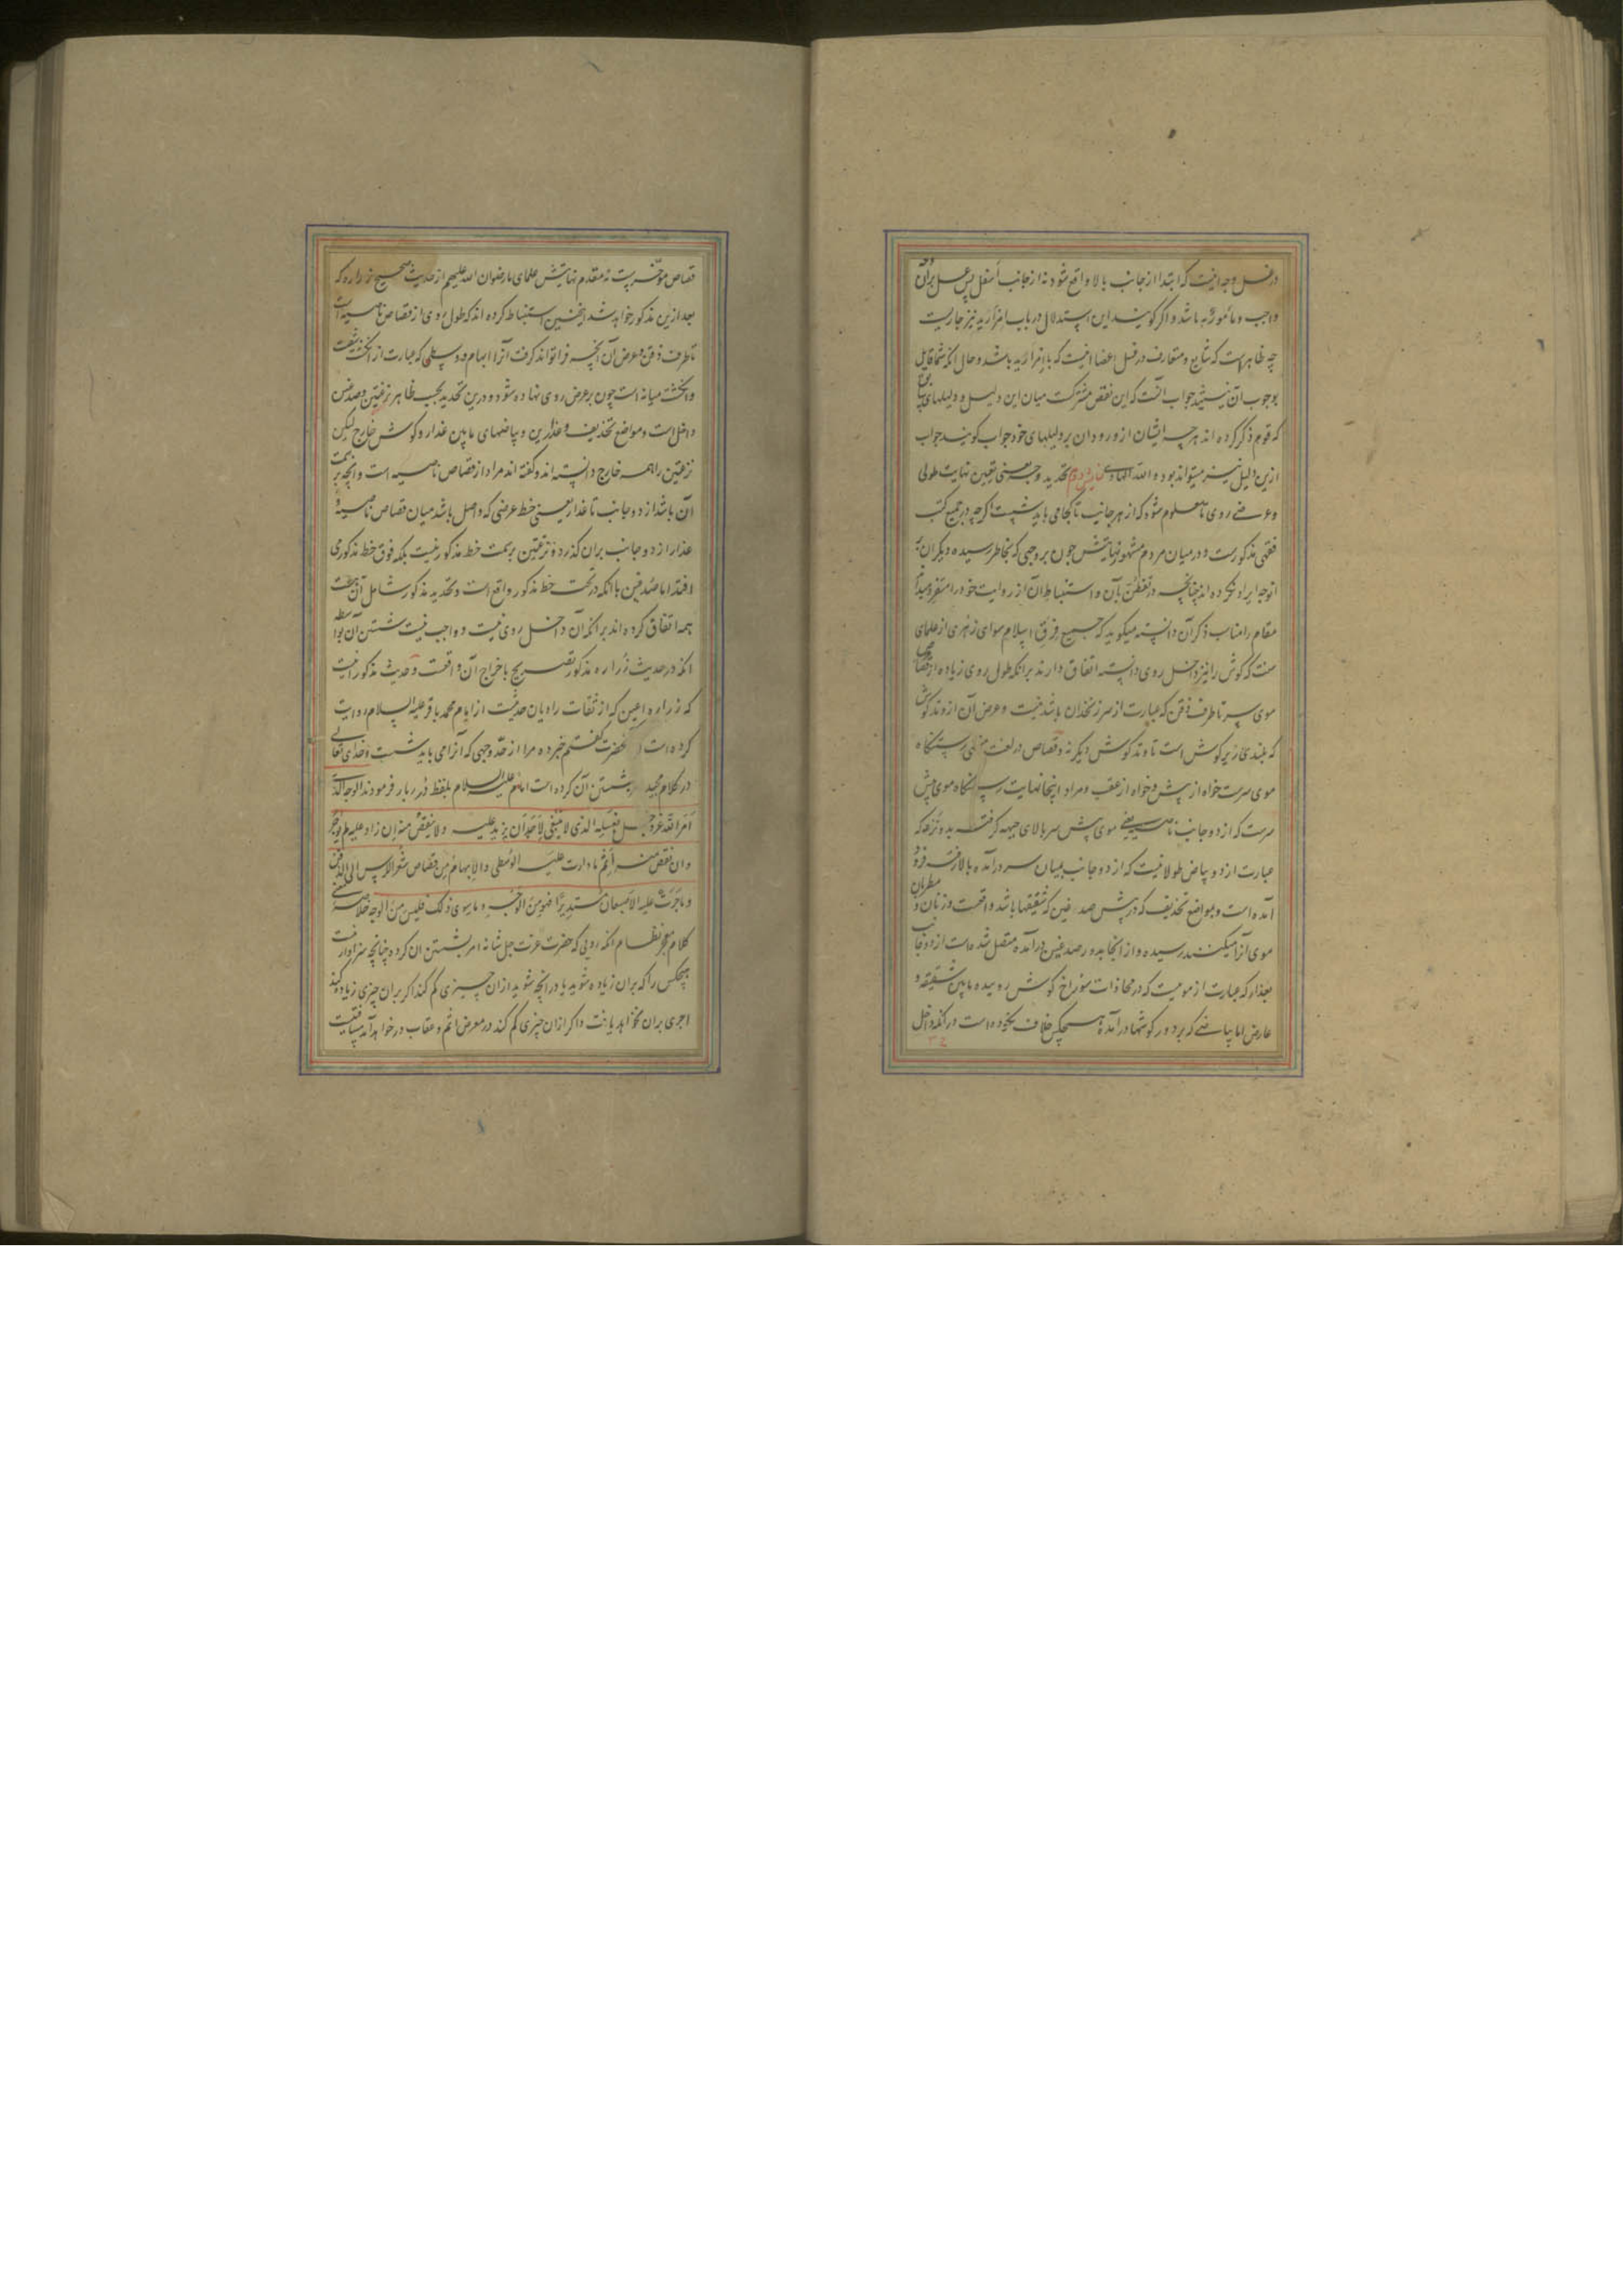 در غسل وجه اینست که ابتدا از جانب بالا واقع شود نه از جانب اسفل پس غسل بران وجه
واجب و مأمور به باشد و اگر گویند این استدلال در باب امرار ید نیز جاریست
چه ظاهرست که شایع و متعارف در غسل اعضا اینست که بامرار ید باشد و حال آنکه شما قایل
بوجوب آن نیستید جواب آنست که این نقض مشترکست میان این دلیل و دلیلهای
که قوم ذکر کرده اند هرچه ایشان از ورود آن بر دلیلهای خود جواب گویند جواب
ازین دلیل نیز میتواند بود و الله الهادی تحدید وجه یعنی تعیین نهایت طولی
و عرضی روی تا معلوم شود که از هر جانب تا کجا می باید شست اگرچه در جمیع کتب
فقهی مذکورست و در میان مردم مشهور نهایتش چون بر وجهی که بخاطر رسیده دیگران
انوجه ایراد نکرده اند چنانچه در تفطن بآن و استنباط آن از روایت خود را متفرد
مقام را مناسب ذکر آن دانسته میگوید که جمیع فرق اسلام سوای زهری از علمای
سنت که گوش را نیز داخل روی دانسته اتفاق دارند برانکه طول روی زیاده از قصاص
موی سر تا طرف ذقن که عبارت از سر زنخدان باشد نیست و عرض آن از وتد گوش
که بلندی زیر گوش است تا وتد گوش دیگر نه و قصاص در لغت منتهی رستنگاه
موی سرست خواه از پیش و خواه از عقب و مراد اینجا نهایت رستنگاه موی پیش
سرست که از دو جانب ناصیه یعنی موی پیش سر بالای جبهه گرفته بدو نزعه که
عبارت از دو بیاض طولانیست که از دو جانب بمیان سر در آمده بالا رفته فرود
آمده است و بمواضع تحذیف که در پیش صدغین که شقیقها باشد واقعست و زنان و مطربان
موی آنرا میکنند رسیده و از انجا بدو صدغین در آمده متصل شده است از دو جانب
بعذار که عبارت از موییست که در محاذات سوراخ گوش روییده ما بین شقیقه و
عارض اما بیاضی که بر دور گوشها در آمده هیچکس خلاف نکرده است در آنکه داخل
قصاص مؤخرست نه مقدم نهایتش علمای ما رضوان الله علیهم از حدیث صحیح زراره که
بعد ازین مذکور خواهد شد اینچنین استنباط کرده اند که طول روی از قصاص ناصیه است
تا طرف ذقن و عرض آن آنچه فرا تواند گرفت آنرا ابهام و وسطی که عبارت از انگشت
و انگشت میانه است چون بر عرض روی نهاده شود و درین تحدید بحسب ظاهر نزعتین و صدغین
داخل است و مواضع تحذیف و عذارین و بیاضهای ما بین عذار و گوش خارج لیکن
نزعتین را همه خارج دانسته اند و گفته اند مراد از قصاص ناصیه است و آنچه بر سمت
آن باشد از دو جانب تا عذار یعنی خط عرضی که واصل باشد میان قصاص ناصیه و
عذار از دو جانب بران گذرد و نزعتین بر سمت خط مذکور نیست بلکه فوق خط مذکور می
افتد اما صدغین با آنکه در تحت خط مذکور واقع است و تحدید مذکور شامل آن هست
همه اتفاق کرده اند بر آنکه آن داخل روی نیست و واجب نیست شستن آن بواسطه
آنکه در حدیث زراره مذکور تصریح باخراج آن واقعست و حدیث مذکور اینست
که زراره اعین که از ثقات راویان حدیثست از امام محمد باقر علیه السلام روایت
کرده است حضرت گفتم خبر ده مرا از حد وجهی که آنرا می باید شست و خدای تعالی
در کلام مجید بشستن آن کرده است امام علیه السلام بلفظ درر بار فرمودند الوجه الذی
امر الله عز و جل بغسله الذی لا ینبغی لاحد ان یزید علیه و لا ینقص منه ان زاد علیه لم یوجر
و ان نقص منه اثم ما دارت علیه الوسطی و الابهام من قصاص شعر الراس الی الذقن
و ما جرت علیه الاصبعان مستدیرا فهو من الوجه و ما سوی ذلک فلیس من الوجه خلاصه معنی
کلام معجز نظام آنکه رویی که حضرت عزت جل شانه امر بشستن آن کرده چنانچه سزاوار نیست
هیچکس را که بران زیاده شوید یا در آنچه شوید ازان چیزی کم کند اگر بران چیزی زیاده کند
اجری بران نخواهد یافت و اگر ازان چیزی کم کند در معرض اثم و عقاب در خواهد آمد